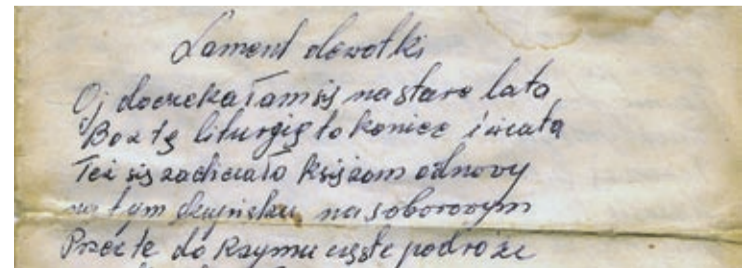 Lament dewotki
Oj doczekałam się na stare lata
Bo z tą liturgią to koniec świata
Też się zachciało księżom odnowy
na tym zejściu na soborowym
Przez te do Rzymu częste podróże